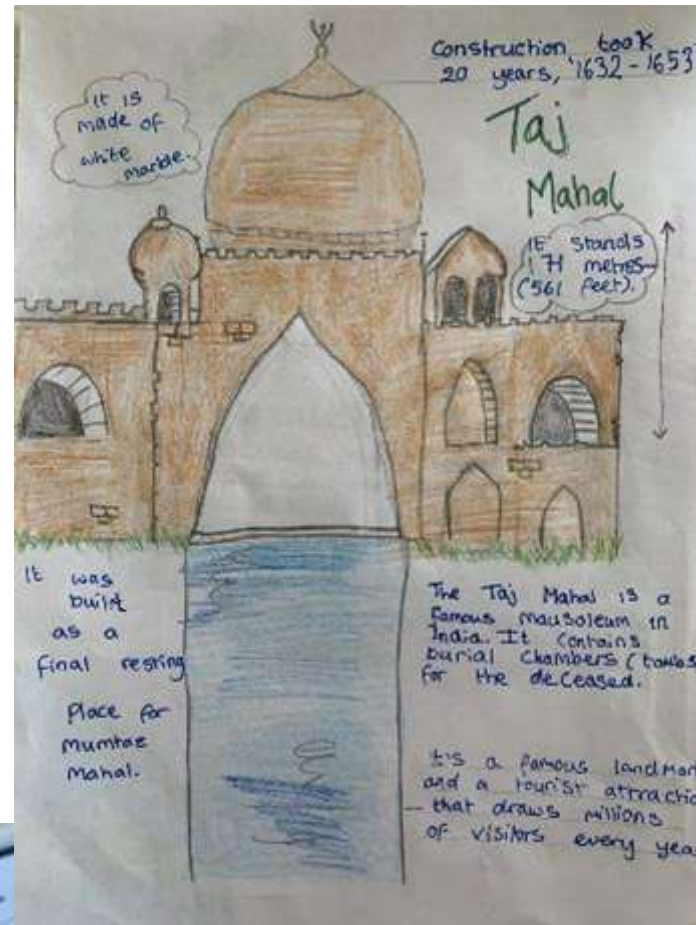 Construction took
20 years, '1632 - 1653
It is
made of
white
marble.
Taj
Mahal
It stands
171 metres
('561 feet).
It was
built
as a
final resting
Place for
mumtaz
mahal.
The Taj Mahal is a
famous mausoleum in
India. It contains
burial chambers (tombs
for the deceased.
It's a famous landmar
and a tourist attractio
that draws millions
of visitors every yea